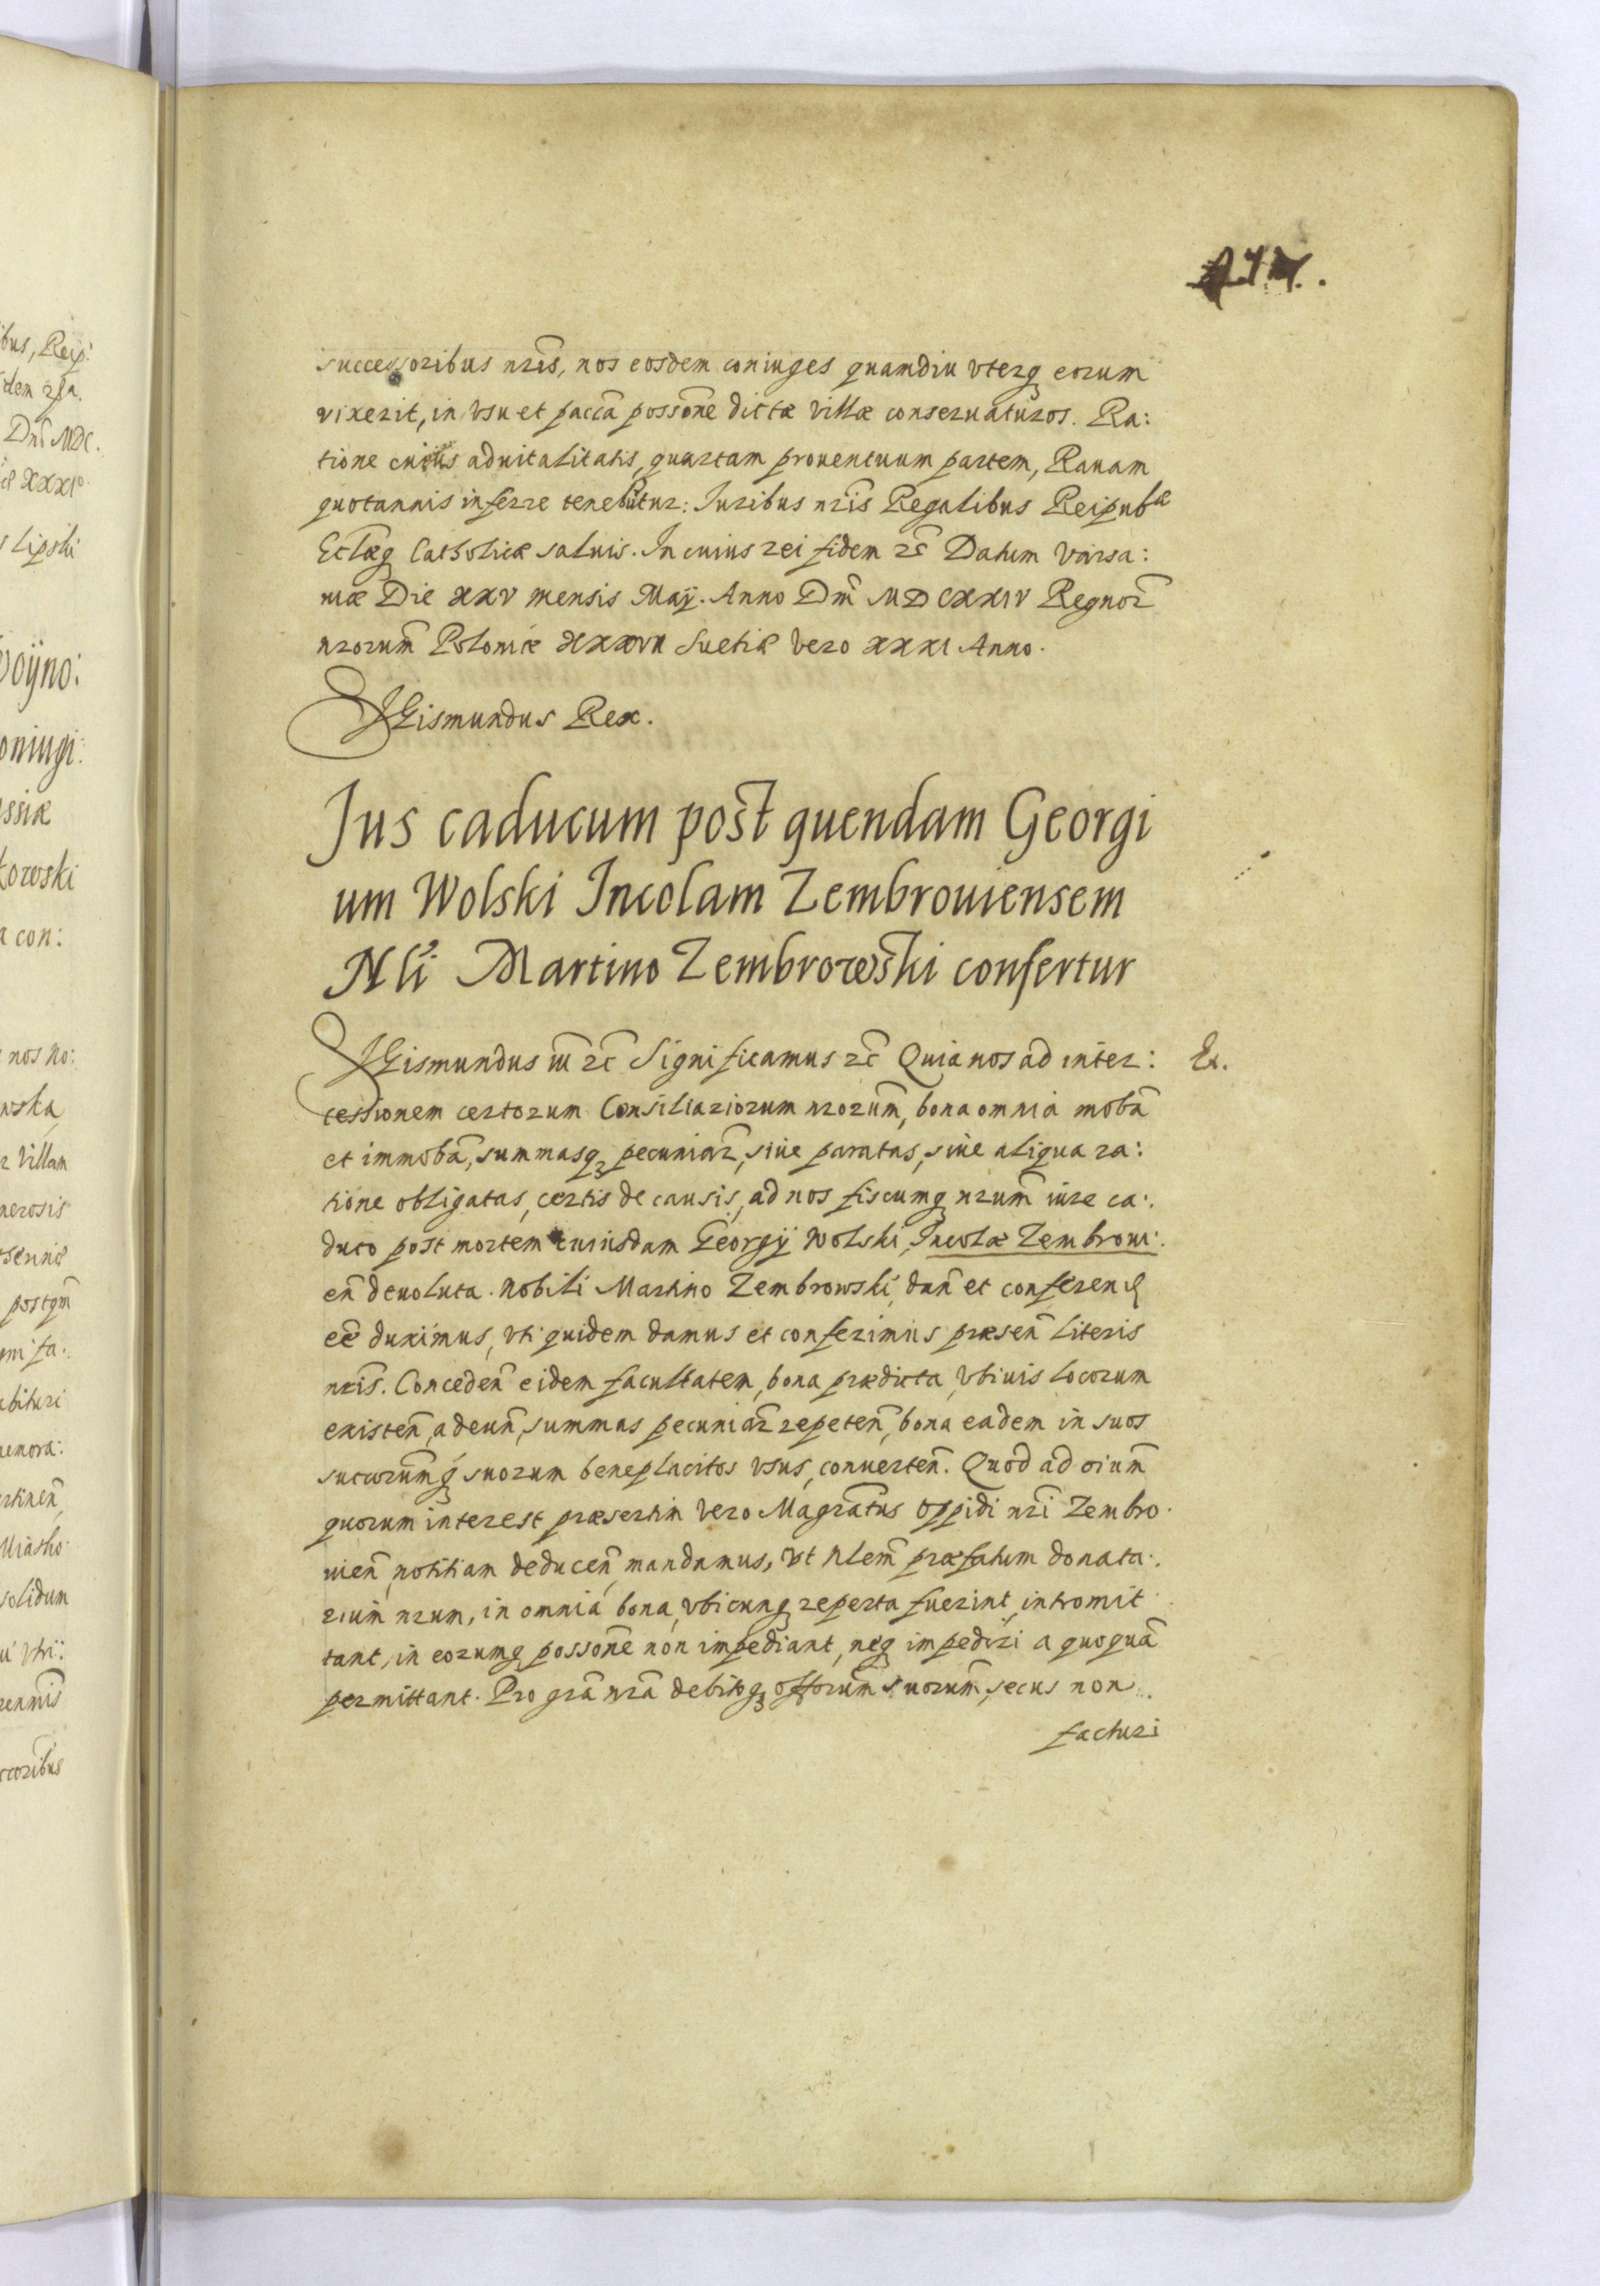 successoribus nr̃is, nos eosdem coniuges quamdiu vterq́ eorum
vixerit, in vsu et paccã possoñe dictæ villæ conseruaturos. Ra:
tione cuius aduitalitatis, quartam prouentuum partem, Rauam
quotannis inferre tenebutur: Iuribus nr̃is Regalibus Reipubᵃᵉ
Ecl̃æq́ Catholicæ saluis. In cuius rei fidem ꝛc̃ Datum Varsa:
uiæ Die XXV mensis Maÿ. Anno Dnĩ MDCXXIV Regnor̃
nrorum̃ Poloniæ XXXVII Suetiæ vero XXXI Anno.
Sigismundus Rex.
Jus caducum post̃ quendam Georgi
um Wolski Incolam Zembrouiensem
Nli Martino Zembrowski confertur
Sigismundus III ꝛc̃ Significamus ꝛc̃ Quia nos ad inter:
Ex.
cessionem certorum Consiliariorum nrorum̃, bona omnia mobã
et immobã, summasq́ pecuniar̃, siue paratas, siue aliqua ra:
tione obligatas, certis de causis, ad nos fiscumq́ nrum̃ iure ca:
duco post mortem cuiusdam Georgÿ Wolski, Incolæ Zembroui:
eñ deuoluta. Nobili Martino Zembrowski, dañ et conferend
eẽ duximus, vti quidem damus et conferimus præseñ literis
nr̃is. Concedeñ eidem facultatem, bona prædicta, vbiuis locorum
existeñ, adeuñ, summas pecuniar̃ repeteñ, bona eadem in suos
succorum̃q́ suorum beneplacitos vsus, conuerteñ. Quod ad oium̃
quorum interest præsertim vero Magratũs oppidi nri Zembro:
uieñ, notitiam deduceñ, mandamus, vt Nlem̃ præfatum donata:
rium nrum, in omnia bona, vbicunq́ reperta fuerint, intromit
tant, in eorumq́ possoñe non impediant, neq́ impediri a quoquã
permittant. Pro grã nrã debitoq́ offorum̃ suorum̃, secus non
facturi